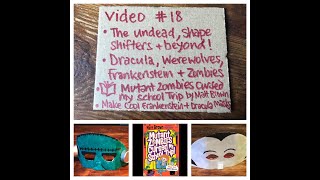 Video #18
• The undead, shape
shifters + beyond!
• Dracula, Werewolves,
Frankenstein + Zombies
• Mutant Zombies Cursed
my school Trip by Matt Brown
• Make Cool Frankenstein + Dracula masks
MUTANT
ZOMBIES
CURSED MY
SCHOOL TRIP